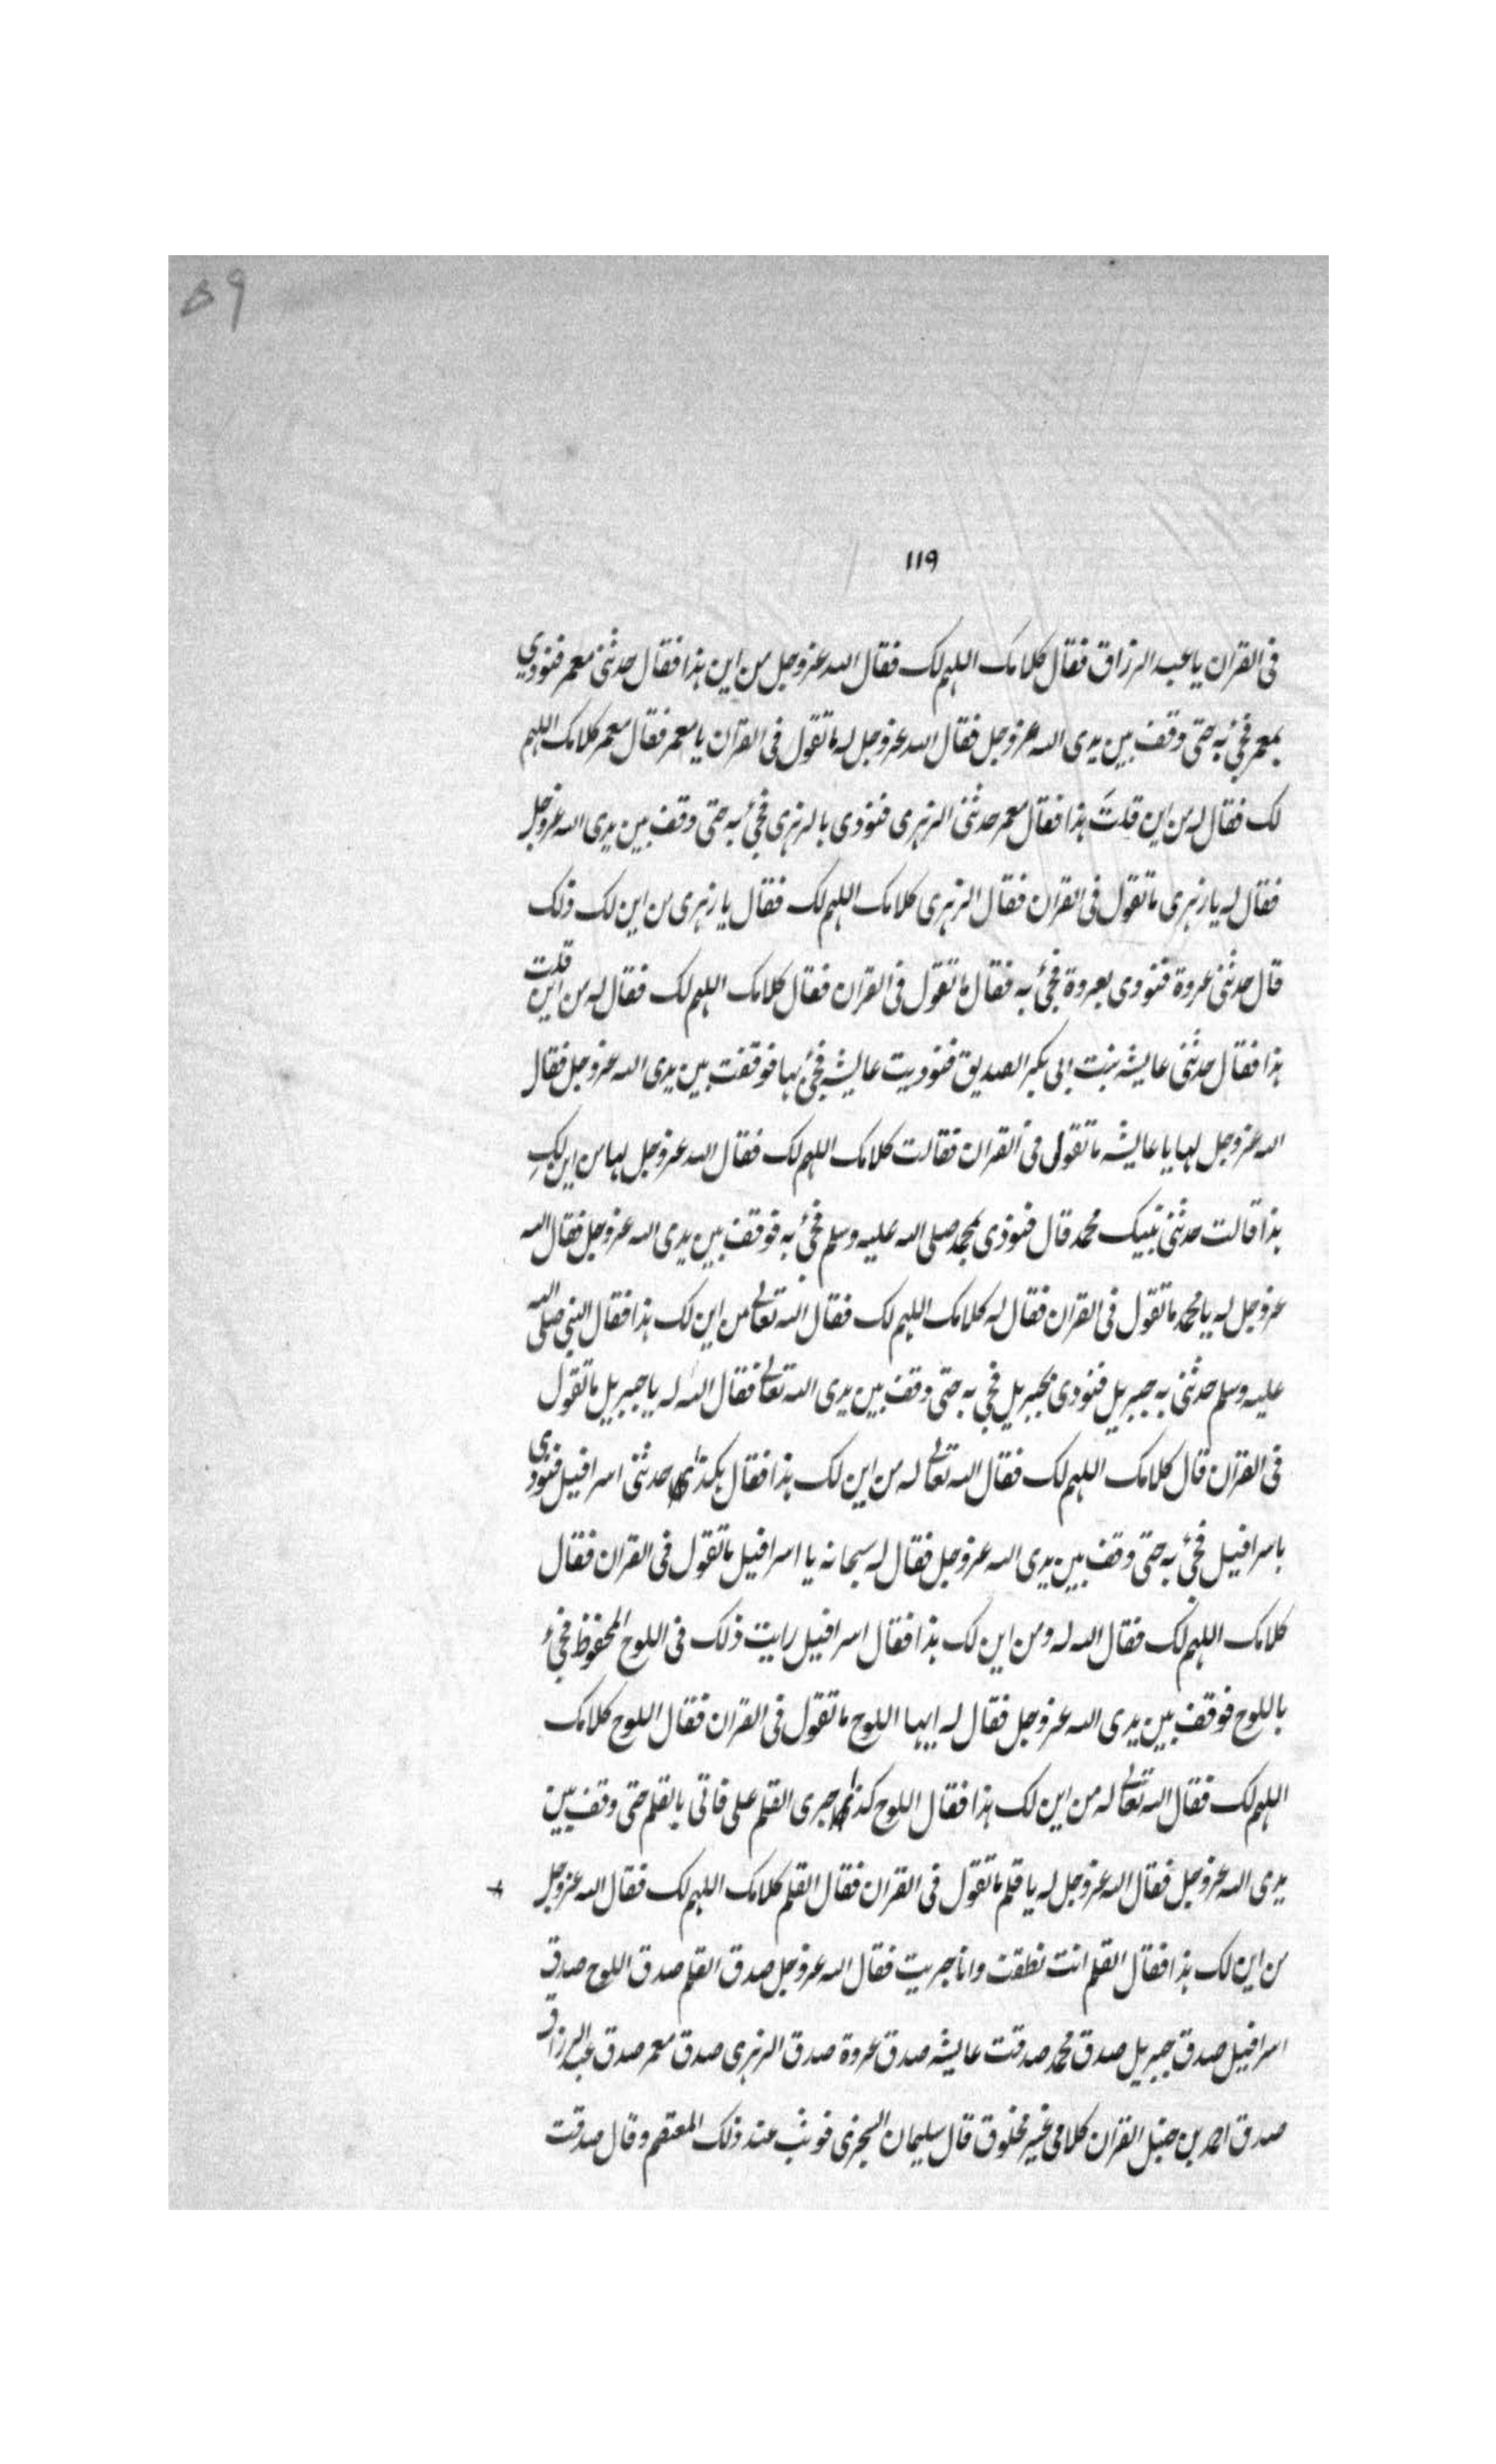 ۵۹
۱۱۹
فى القران يا عبد الرزاق فقال كلامك اللهم لك فقال الله عزوجل من اين هذا فقال حدثنى معمر فنودى
بمعمر فجئ به حتى وقف بين يدى الله عزوجل فقال الله عزوجل له ما تقول فى القران يا معمر فقال معمر كلامك اللهم
لك فقال له من اين قلتَ هذا فقال معمر حدثنى الزهرى فنودى بالزهرى فجئ به حتى وقف بين يدى الله عزوجل
فقال له يا زهرى ما تقول فى القران فقال الزهرى كلامك اللهم لك فقال يا زهرى من اين لك ذلك
قال حدثنى عروة فنودى بعروة فجئ به فقال ما تقول فى القران فقال كلامك اللهم لك فقال له من اين قلت
هذا فقال حدثنى عايشه بنت ابى بكر الصديق فنوديت عايشه فجئ بها فوقفت بين يدى الله عزوجل فقال
الله عزوجل لها يا عايشه ما تقولى فى القران فقالت كلامك اللهم لك فقال الله عزوجل لها من اين لكِ
هذا قالت حدثنى نبيك محمد قال فنودى بمحمد صلى الله عليه وسلم فجئ به فوقف بين يدى الله عزوجل فقال الله
عزوجل له يا محمد ما تقول فى القران فقال له كلامك اللهم لك فقال الله تعالى من اين لك هذا فقال النبى صلى الله
عليه وسلم حدثنى به جبريل فنودى بجبريل فجى به حتى وقف بين يدى الله تعالى فقال الله له يا جبريل ما تقول
فى القران قال كلامك اللهم لك فقال الله تعالى له من اين لك هذا فقال هكذا حدثنى اسرافيل فنودى
باسرافيل فجئ به حتى وقف بين يدى الله عزوجل فقال له سبحانه يا اسرافيل ما تقول فى القران فقال
كلامك اللهم لك فقال الله له ومن اين لك هذا فقال اسرافيل رايت ذلك فى اللوح المحفوظ فجئ
باللوح فوقف بين يدى الله عزوجل فقال له ايها اللوح ما تقول فى القران فقال اللوح كلامك
اللهم لك فقال الله تعالى له من اين لك هذا فقال اللوح كذا جرى القلم على فاتى بالقلم حتى وقف بين
يدى الله عزوجل فقال الله عزوجل له يا قلم ما تقول فى القران فقال القلم كلامك اللهم لك فقال الله عزوجل
من اين لك هذا فقال القلم انت نطقت وانا جريت فقال الله عزوجل صدق القلم صدق اللوح صدق
اسرافيل صدق جبريل صدق محمد صدقت عايشه صدق عروة صدق الزهرى صدق معمر صدق عبد الرزاق
صدق احمد بن حنبل القران كلامى غير مخلوق قال سليمان السجزى فوثب عند ذلك المعتصم وقال صدقت